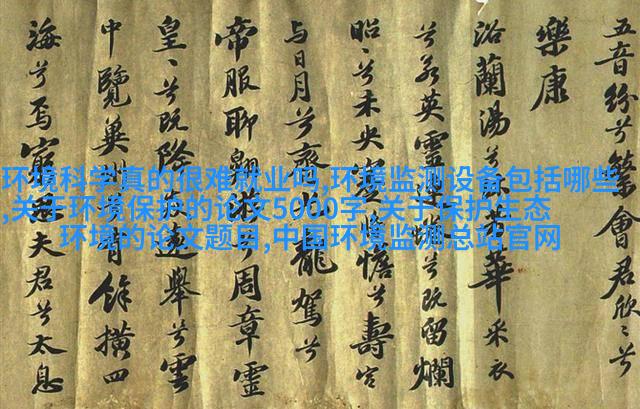 五音紛兮繁會君欣〻兮
樂康
浴蘭湯兮沐華采衣
兮若英靈連兮既留爛
昭〻兮未央憺兮壽宮
与日月兮齊龍駕兮
帝服聊翱兮周章靈
皇〻兮既降遠舉兮雲
中覽兾有餘橫四
海兮焉窮夫君兮太息
环境科学真的很难就业吗,环境监测设备包括哪些
,关于环境保护的论文5000字,关于保护生态
环境的论文题目,中国环境监测总站官网